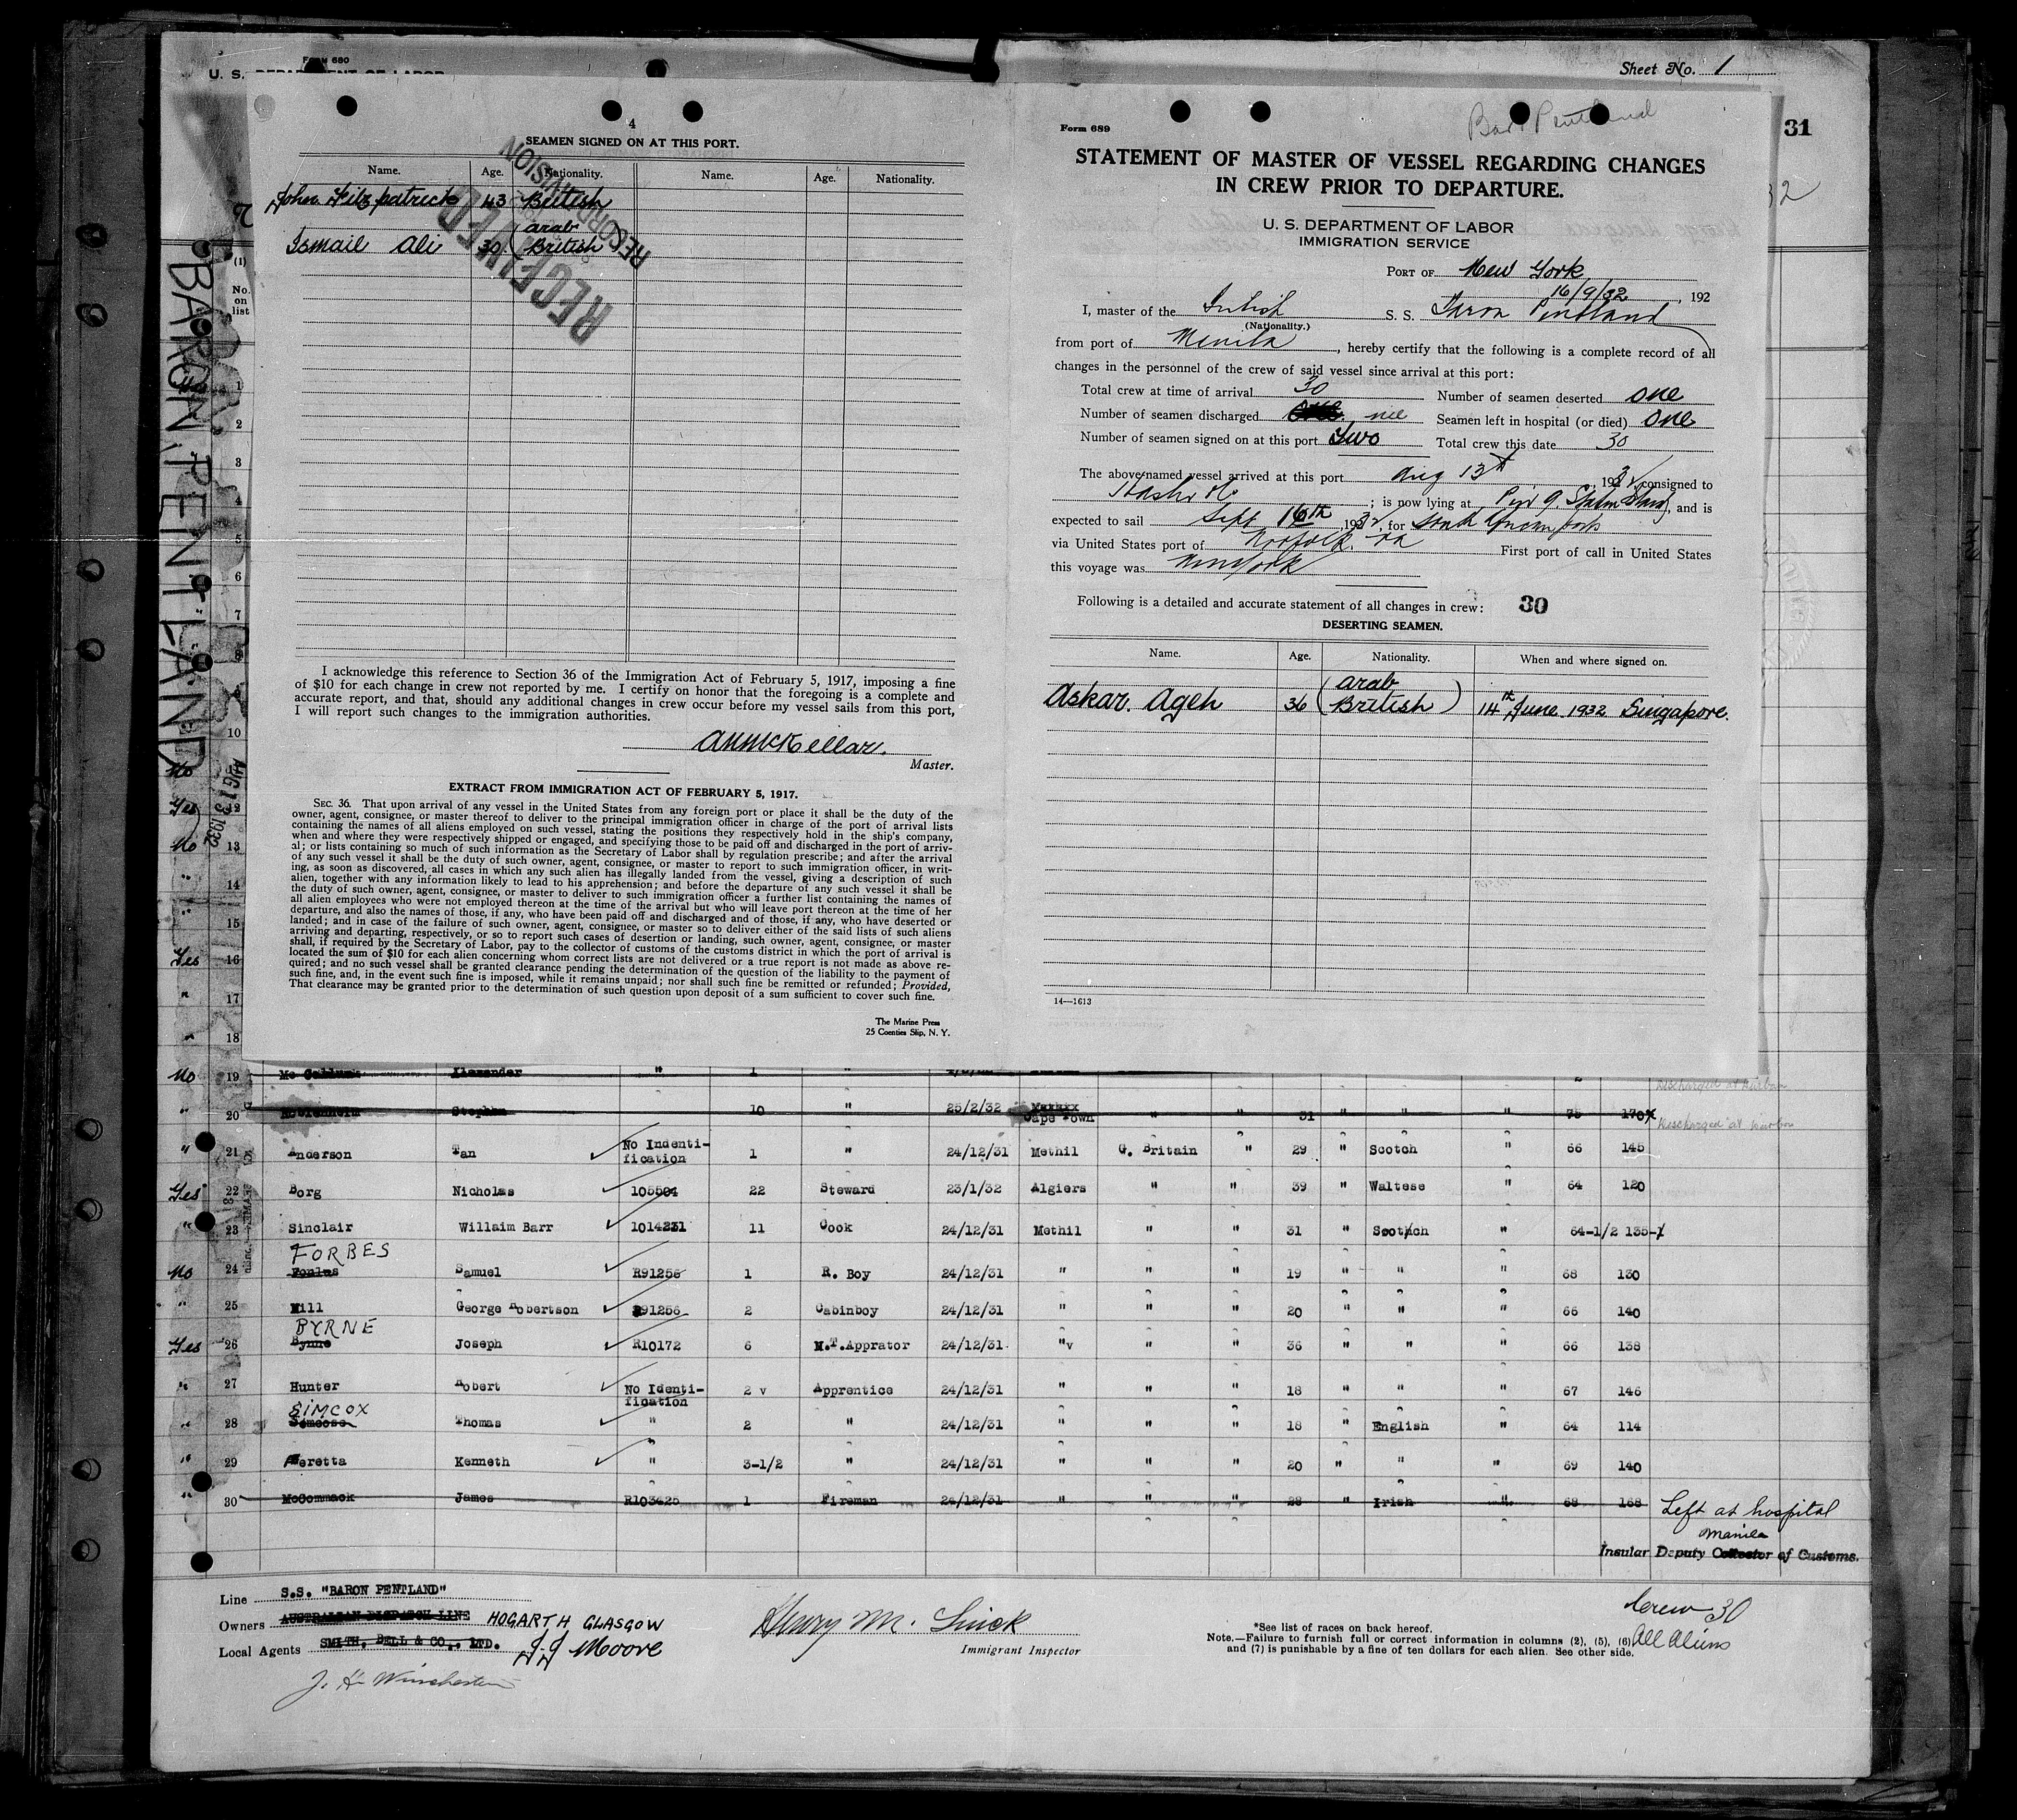 Form 680
U. S. DEPARTMENT OF LABOR
Sheet No. 1
31
32
BARON PENTLAND
AUG 13 1932
(1)
No. on list
4
SEAMEN SIGNED ON AT THIS PORT.
Name. Age. Nationality. Name. Age. Nationality.
John Fitzpatrick 43 British
Ismail Ali 30 (arab British)
RECEIVED
RECORD DIVISION
I acknowledge this reference to Section 36 of the Immigration Act of February 5, 1917, imposing a fine
of $10 for each change in crew not reported by me. I certify on honor that the foregoing is a complete and
accurate report, and that, should any additional changes in crew occur before my vessel sails from this port,
I will report such changes to the immigration authorities.
Master.
EXTRACT FROM IMMIGRATION ACT OF FEBRUARY 5, 1917.
SEC. 36. That upon arrival of any vessel in the United States from any foreign port or place it shall be the duty of the
owner, agent, consignee, or master thereof to deliver to the principal immigration officer in charge of the port of arrival lists
containing the names of all aliens employed on such vessel, stating the positions they respectively hold in the ship's company,
when and where they were respectively shipped or engaged, and specifying those to be paid off and discharged in the port of arriv-
al; or lists containing so much of such information as the Secretary of Labor shall by regulation prescribe; and after the arrival
of any such vessel it shall be the duty of such owner, agent, consignee, or master to report to such immigration officer, in writ-
ing, as soon as discovered, all cases in which any such alien has illegally landed from the vessel, giving a description of such
alien, together with any information likely to lead to his apprehension; and before the departure of any such vessel it shall be
the duty of such owner, agent, consignee, or master to deliver to such immigration officer a further list containing the names of
all alien employees who were not employed thereon at the time of the arrival but who will leave port thereon at the time of her
departure, and also the names of those, if any, who have been paid off and discharged and of those, if any, who have deserted or
landed; and in case of the failure of such owner, agent, consignee, or master so to deliver either of the said lists of such aliens
arriving and departing, respectively, or so to report such cases of desertion or landing, such owner, agent, consignee, or master
shall, if required by the Secretary of Labor, pay to the collector of customs of the customs district in which the port of arrival is
located the sum of $10 for each alien concerning whom correct lists are not delivered or a true report is not made as above re-
quired; and no such vessel shall be granted clearance pending the determination of the question of the liability to the payment of
such fine, and, in the event such fine is imposed, while it remains unpaid; nor shall such fine be remitted or refunded; Provided,
That clearance may be granted prior to the determination of such question upon deposit of a sum sufficient to cover such fine.
The Marine Press
25 Coenties Slip, N. Y.
Form 689
Baron Pentland
STATEMENT OF MASTER OF VESSEL REGARDING CHANGES
IN CREW PRIOR TO DEPARTURE.
U. S. DEPARTMENT OF LABOR
IMMIGRATION SERVICE
PORT OF New York
16/9/32, 192
I, master of the British S. S. Baron Pentland
(Nationality.)
from port of Manila, hereby certify that the following is a complete record of all
changes in the personnel of the crew of said vessel since arrival at this port:
Total crew at time of arrival 30 Number of seamen deserted one
Number of seamen discharged nil Seamen left in hospital (or died) one
Number of seamen signed on at this port Two Total crew this date 30
The above-named vessel arrived at this port Aug 13th 1932, consigned to
; is now lying at Pier 9, Staten Island, and is
expected to sail Sept 16th, 1932, for
via United States port of Norfolk Va First port of call in United States
this voyage was New York
Following is a detailed and accurate statement of all changes in crew: 30
DESERTING SEAMEN.
Name. Age. Nationality. When and where signed on.
Askar Ageh 36 (arab British) 14th June 1932 Singapore.
14—1613
No 19 Mc Callum Alexander " 1 "
" 20 Stephen 10 " 25/2/32 Cape Town " " 31 " " " 75 170 Discharged at Durban
" 21 Anderson Tan No Indenti-fication 1 " 24/12/31 Methil G. Britain " 29 " Scotch " 66 145
Yes 22 Borg Nicholas 105504 22 Steward 23/1/32 Algiers " " 39 " Waltese " 64 120
" 23 Sinclair Willaim Barr 1014231 11 Cook 24/12/31 Methil " " 31 " Scotch " 64-1/2 135
FORBES
No 24 Foulas Samuel R91256 1 R. Boy 24/12/31 " " " 19 " " " 68 130
" 25 Mill George Robertson R91256 2 Cabinboy 24/12/31 " " " 20 " " " 66 140
BYRNE
Yes 26 Bynne Joseph R10172 6 M.T.Apprator 24/12/31 "v " " 36 " " " 66 138
" 27 Hunter Robert No Identi-fication 2 v Apprentice 24/12/31 " " " 18 " " " 67 146
SIMCOX
" 28 Simcose Thomas " 2 " 24/12/31 " " " 18 " English " 64 114
" 29 Feretta Kenneth " 3-1/2 " 24/12/31 " " " 20 " " " 69 140
" 30 McCommack James R103625 1 Fireman 24/12/31 " " " 28 " Irish " 68 168 Left at hospital
Manila
Insular Deputy Collector of Customs.
Line S.S. "BARON PENTLAND"
Owners AUSTRALIAN DISPATCH LINE HOGARTH GLASGOW
Local Agents SMITH, BELL & CO., LTD. J.J. Moore
J. H. Winchester
Immigrant Inspector
*See list of races on back hereof.
Note.—Failure to furnish full or correct information in columns (2), (5), (6)
and (7) is punishable by a fine of ten dollars for each alien. See other side.
Crew 30
All Aliens